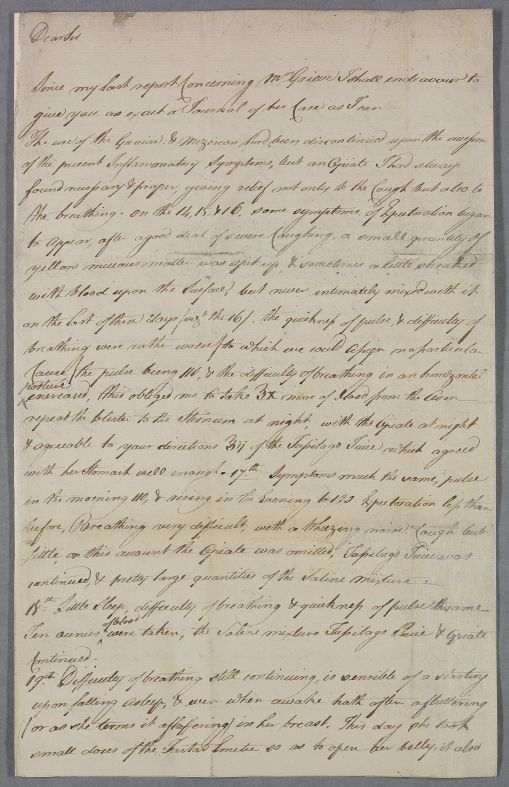 Dear Sir
Since my last report Concerning Mrs Grieve I shall endeavour to
give you as exact a Journal of her Case as I can
The use of the & Mezereon had been discontinued upon the
of the present Inflammatory Symptoms, but an Opiate I had always
found necessary & proper, giving relief not only to the Cough but also to
the breathing. on the 14, 15, & 16. some symptoms of Expectoration began
to appear, after a good deal of severe Coughing, a small quantity of
yellow mucous matter was spit up, & sometimes a little streaked
with blood upon the Surface, but never intimately mixed with it
on the last of these days (vizt the 16). the quickness of pulse, & difficulty of
breathing were rather worse (to which we could assign no particular
Cause) the pulse being 110, & the difficulty of breathing in an horizontal
posture
encreased, this obliged me to take ℥x more of blood from the arm
repeat the blister to the Sternum at night, with the Opiate at night
& agreeable to your directions ℥ij of the Tussilago Juice which agreed
with her Stomach well enough. 17th Symptoms much the same, pulse
in the morning 110, & rising in the Evening to 120 Expectoration less than
before, Breathing very difficult, with a Wheezing noise. Cough but
little on this account the Opiate was omitted, Tussilago Juice was
continued & pretty large quantities of the Saline mixture
18th. Little Sleep, difficulty of breathing & quickness of pulse the same
Ten ounces of blood were taken, the Saline mixture Tussilago Juice & Opiate
Continued.
19th Difficulty of breathing still continuing, is sensible of a starting
upon falling asleep, & even when awake hath often a fluttering
(or as she terms it a ) in her breast. This day she took
small doses of the Tartar Emetic so as to open her belly, it also